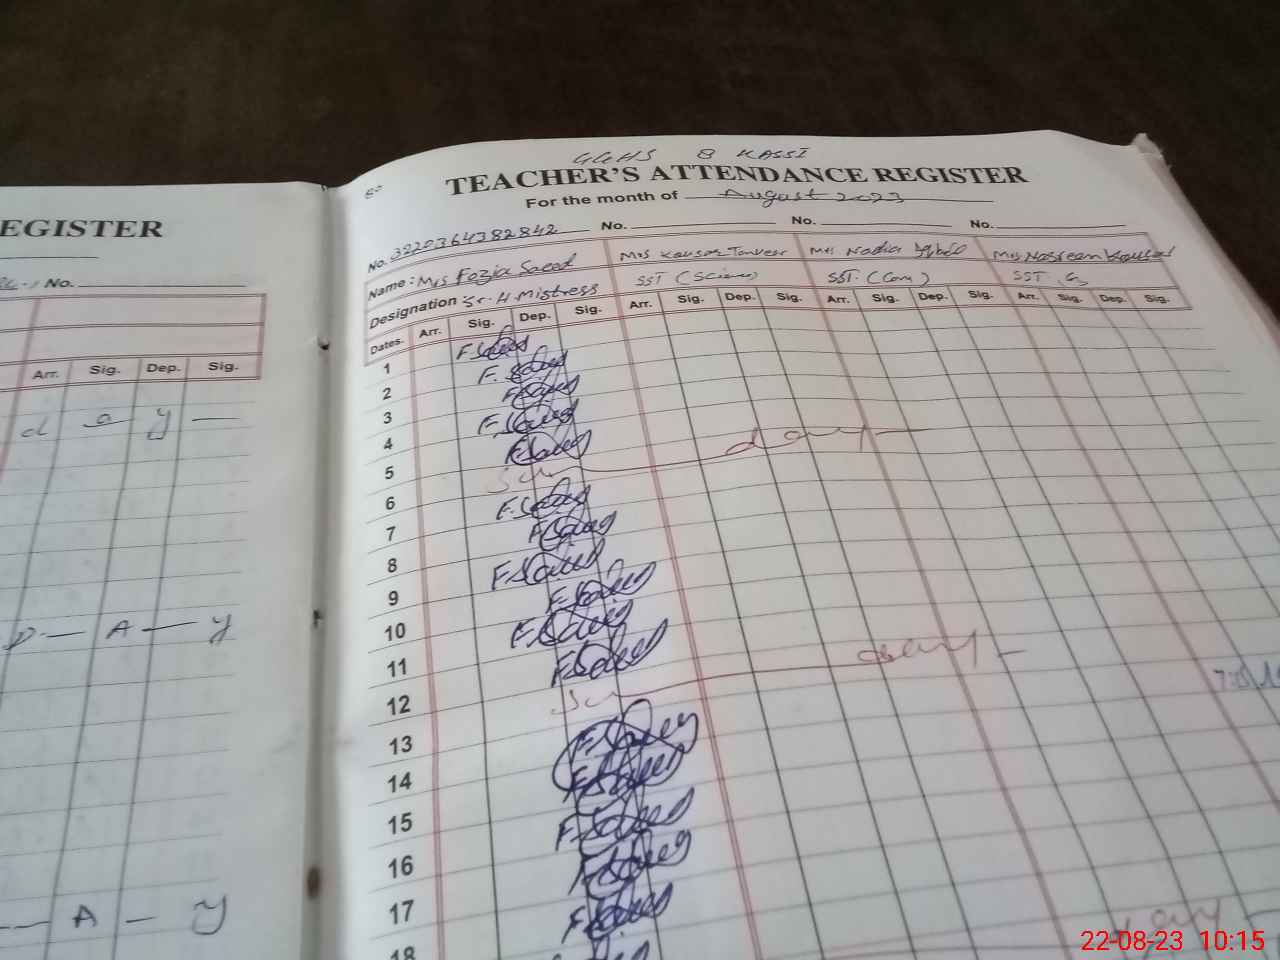 GGHS 8 KASSI
TEACHER'S ATTENDANCE REGISTER
For the month of August 2023
No. 3220364382842 No. No. No.
Name: Mrs Fozia Saeed Mrs Kausar Tanveer Mrs Nadia Mrs Nasreen Kausar
Designation Sr. H. Mistress SST (Science) SST. (Com) SST G
Dates. Arr. Sig. Dep. Sig. Arr. Sig. Dep. Sig. Arr. Sig. Dep. Sig. Arr. Sig. Dep. Sig.
1 F. Saeed
2 F. Saeed
3 F. Saeed
4 F. Saeed
5 F. Saeed
6 Sun day
7 F. Saeed
8 F. Saeed
9 F. Saeed
10 F. Saeed
11 F. Saeed
12 F. Saeed
13 Sun day
14 F. Saeed
15 F. Saeed
16 F. Saeed
17 F. Saeed
18 F. Saeed
day
EGISTER
No.
Arr. Sig. Dep. Sig.
d a y
D A y
A y
22-08-23 10:15